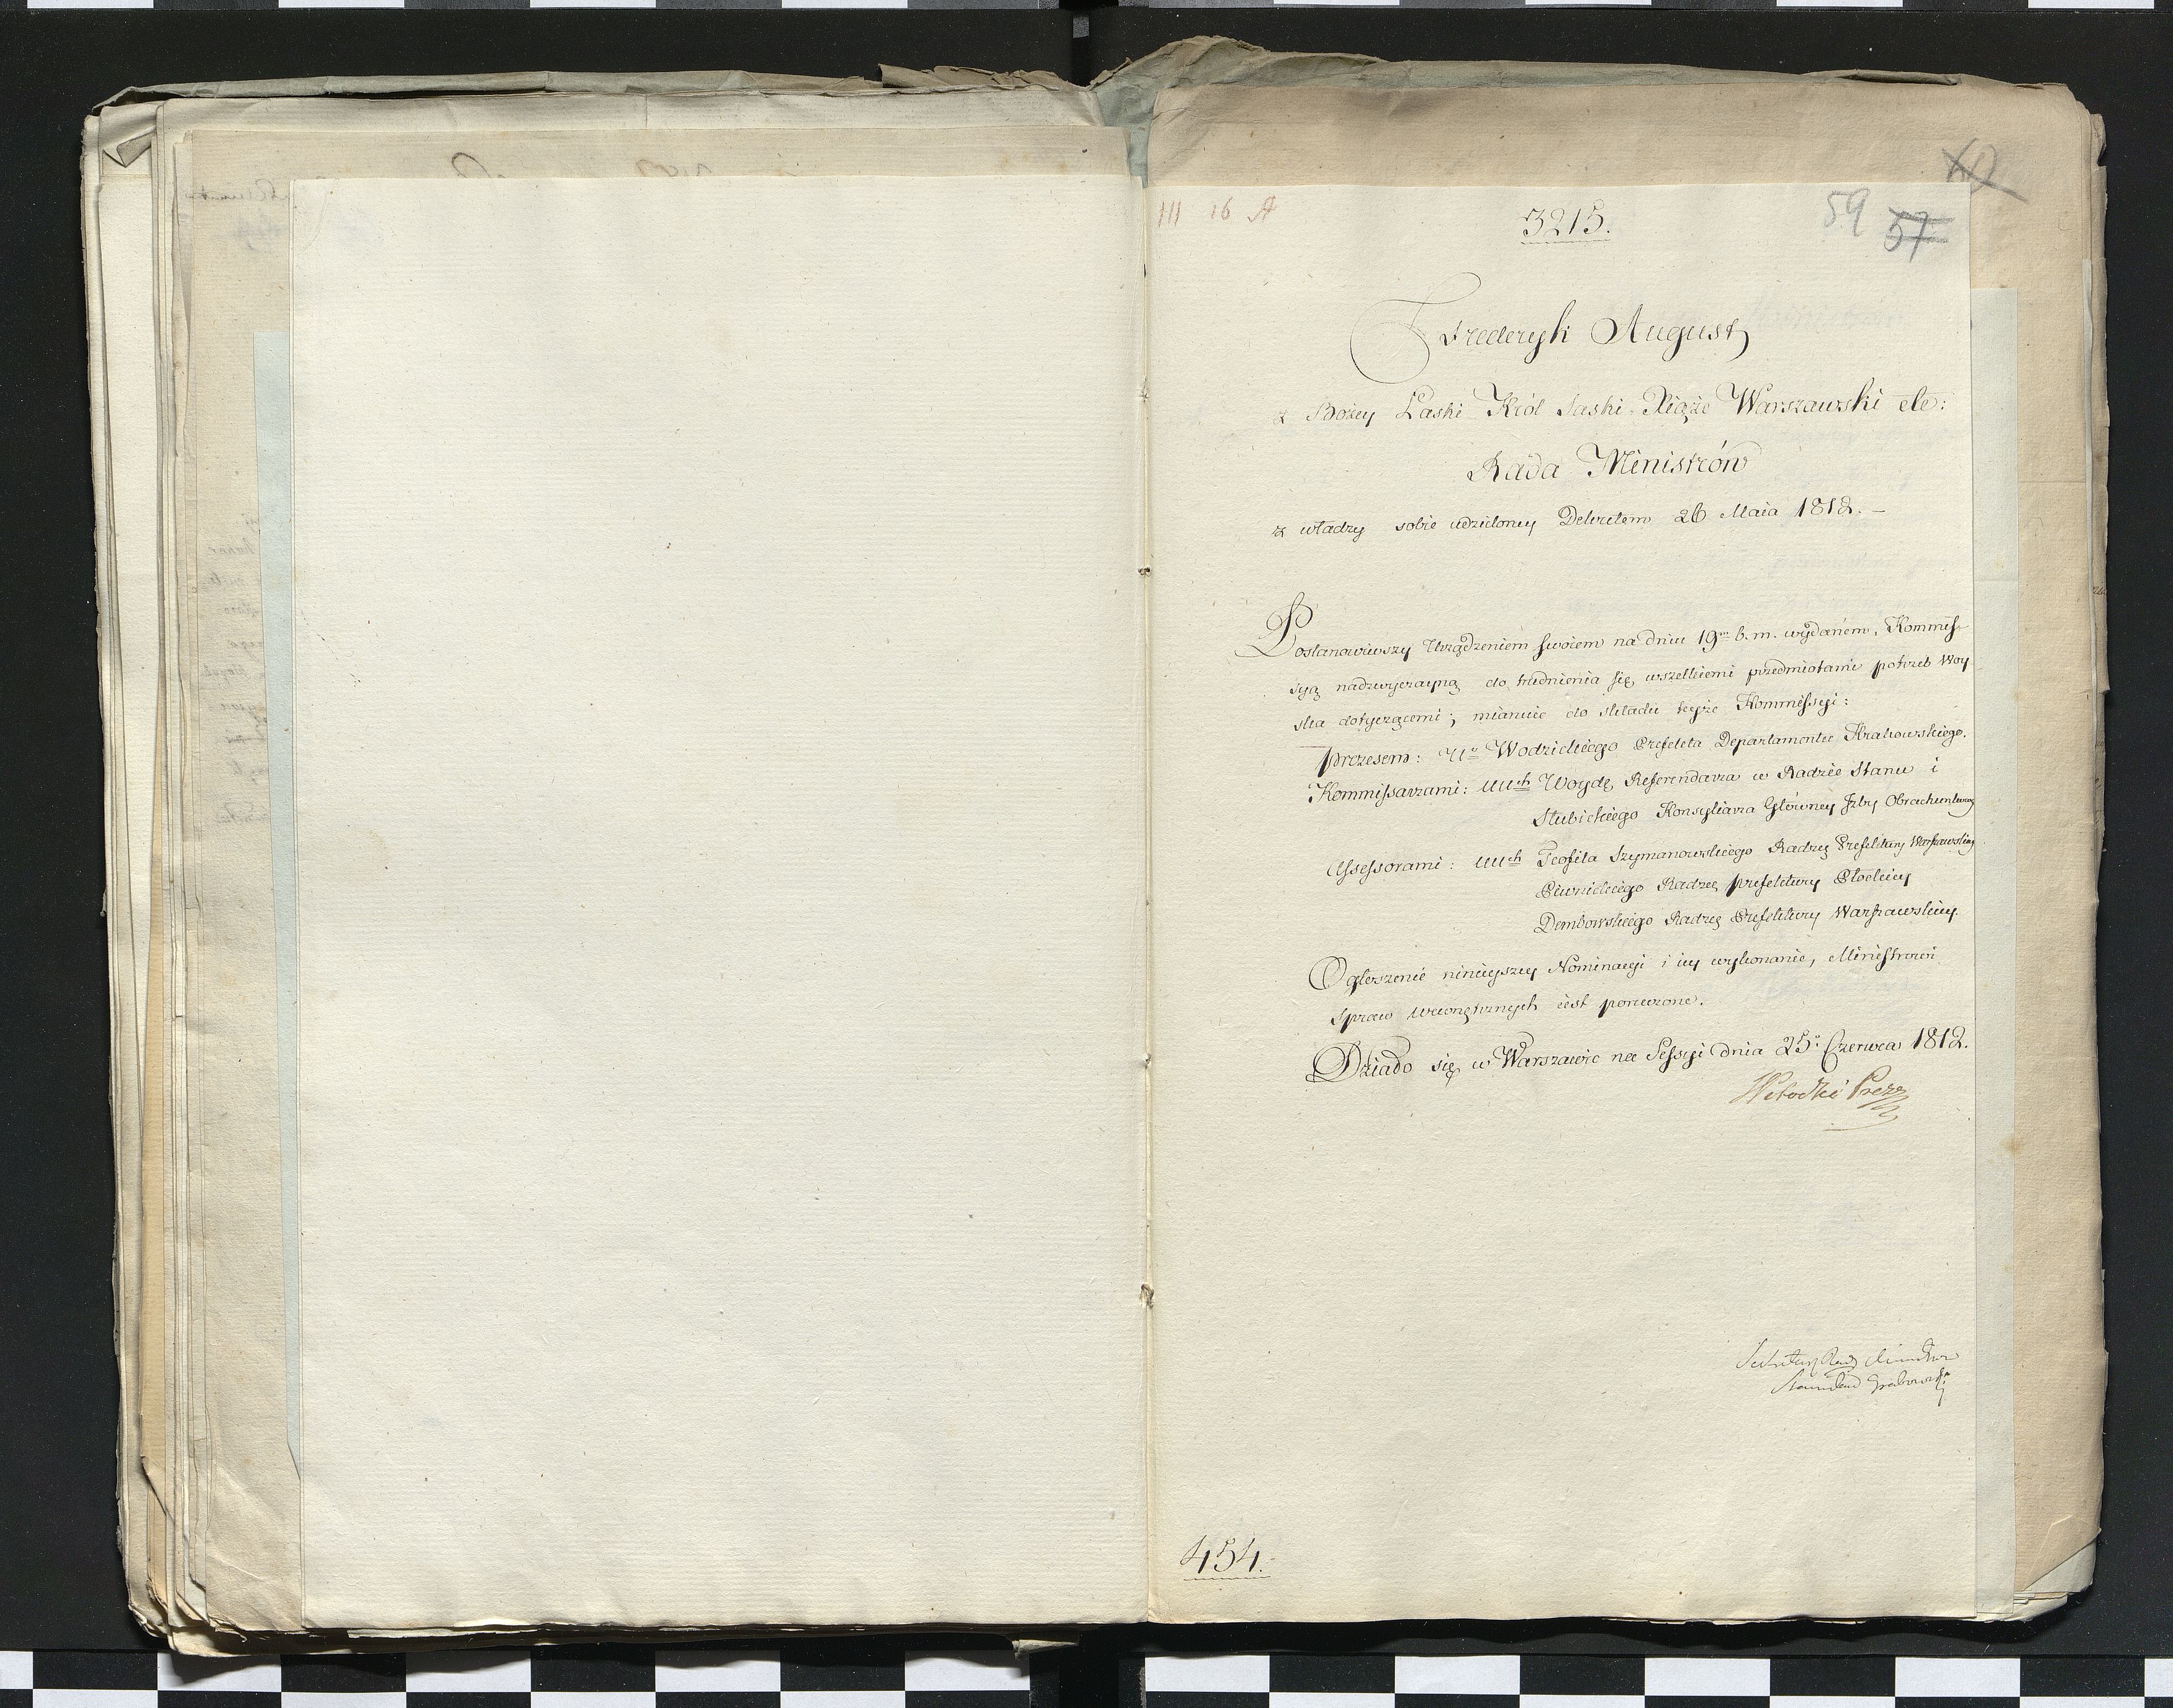 III 16 A
3215.
59 57
60
Frederyk August
z Bożey Łaski Król Saski Xiąże Warszawski etc:
Rada Ministrów
z władzy sobie udzieloney Dekretem 26 Maia 1812. –
Postanowiwszy Urządzeniem swoiem na dniu 19m b. m. wydanem, Kommis-
syą nadzwyczayną do trudnienia się wszelkiemi przedmiotami potrzeb Woy
ska dotyczącemi; mianuie do składu teyże Kommissyi:
Prezesem: Ur Wodzickiego Prefekta Departamentu Krakowskiego.
Kommissarzami: UUch Woydę Referendarza w Radzie Stanu i
Słubickiego Konsyliarza Główney Izby Obrachunkowey
Assessorami: UUch Teofila Szymanowskiego Radzcę Prefektury Warszawskiey
Piwnickiego Radzcę prefektury Płockiey
Dembowskiego Radzcę Prefektury Warszawskiey.
Ogłoszenie ninieyszey Nominacyi i iey wykonanie, Ministrowi
spraw wewnętrznych iest poruczone.
Działo się w Warszawie na Sessyi dnia 25o Czerwca 1812.
Prezes
Sekretarz Rady Ministrów
Stanisław Grabowski
454.